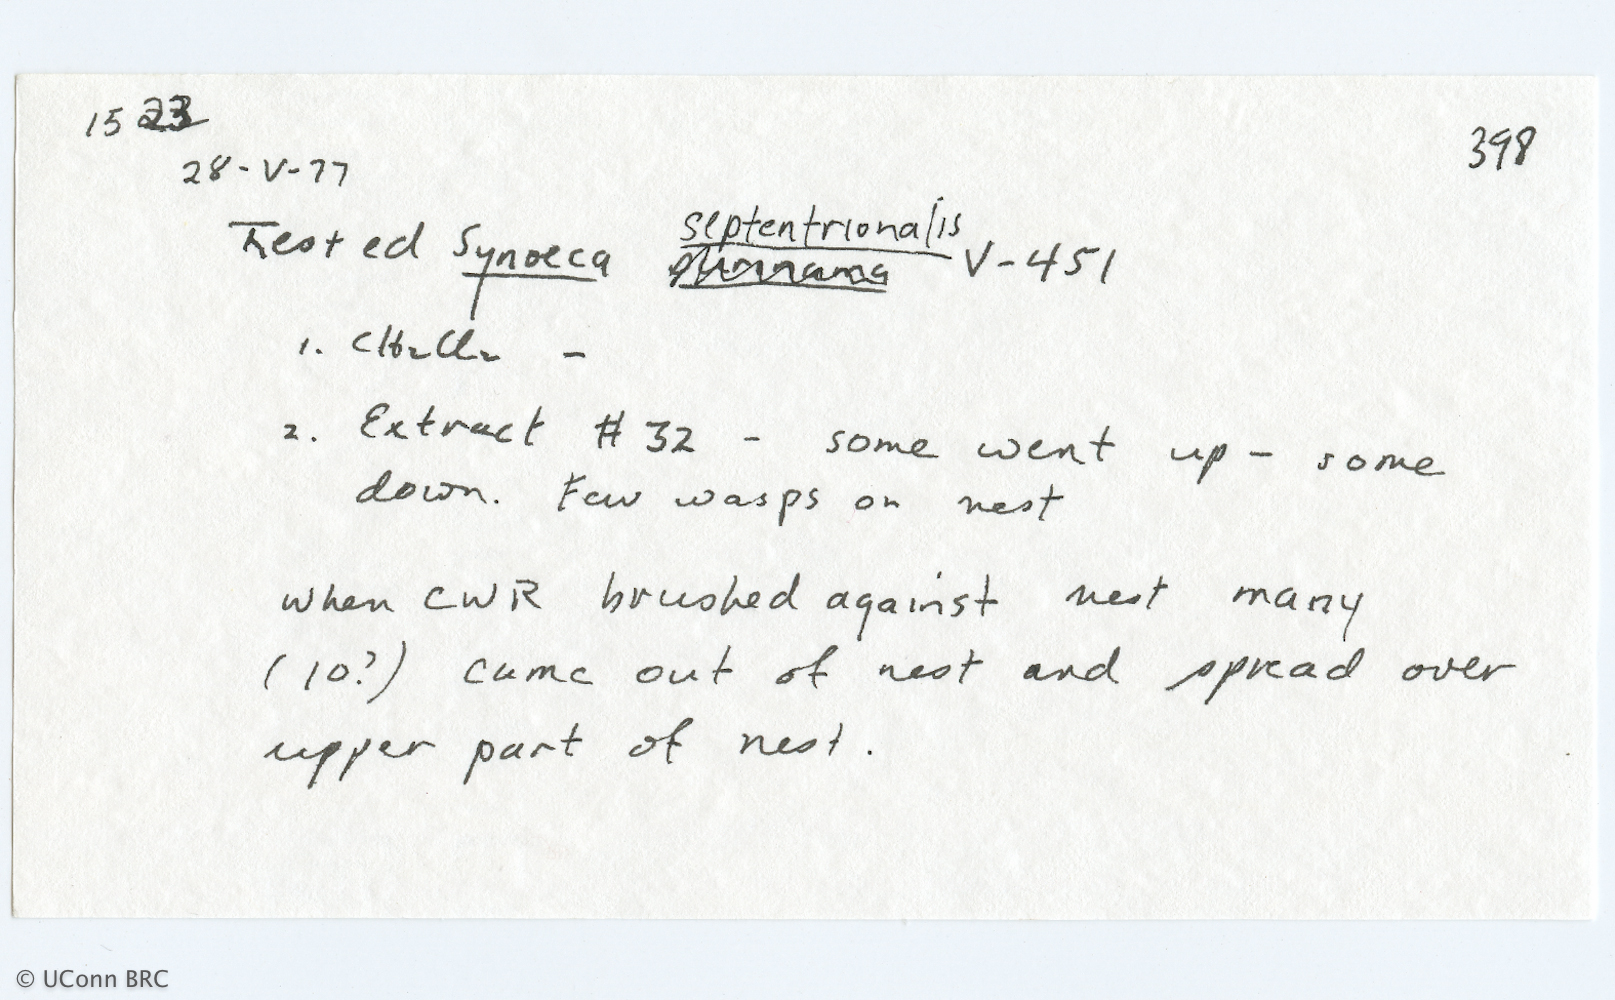 1523
398
28-V-77
septentrionalis
Tested Synoeca surinama V-451
1. CH2Cl2 -
2. Extract #32 - some went up - some
down. Few wasps on nest
when CWR brushed against nest many
(10?) came out of nest and spread over
upper part of nest.
© UConn BRC